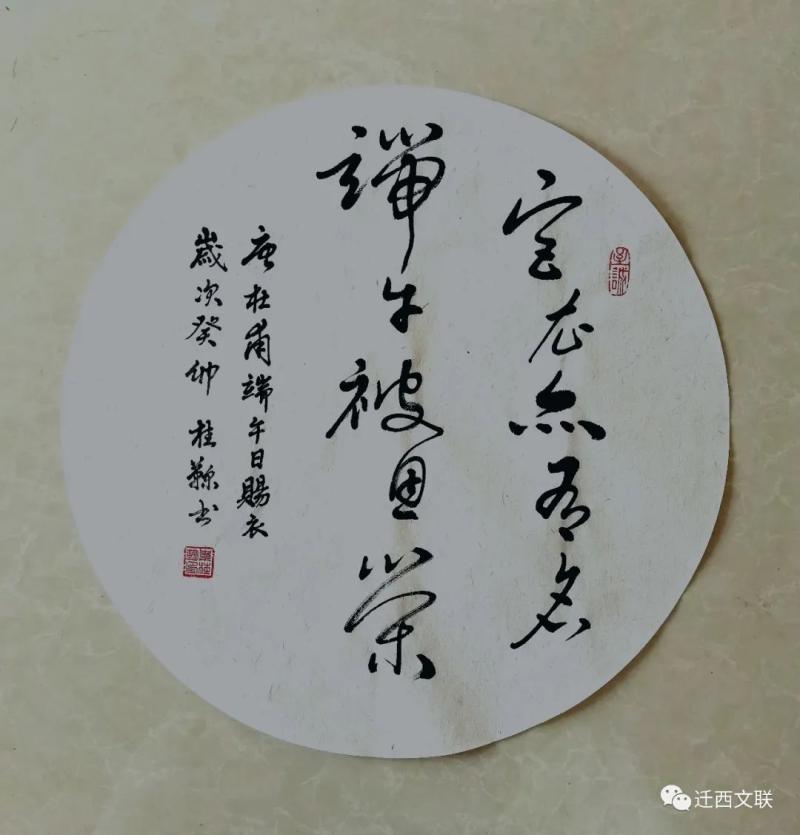 宫衣亦有名
端午被恩荣
唐杜甫端午日賜衣
歲次癸卯 桂 书
迁西文联